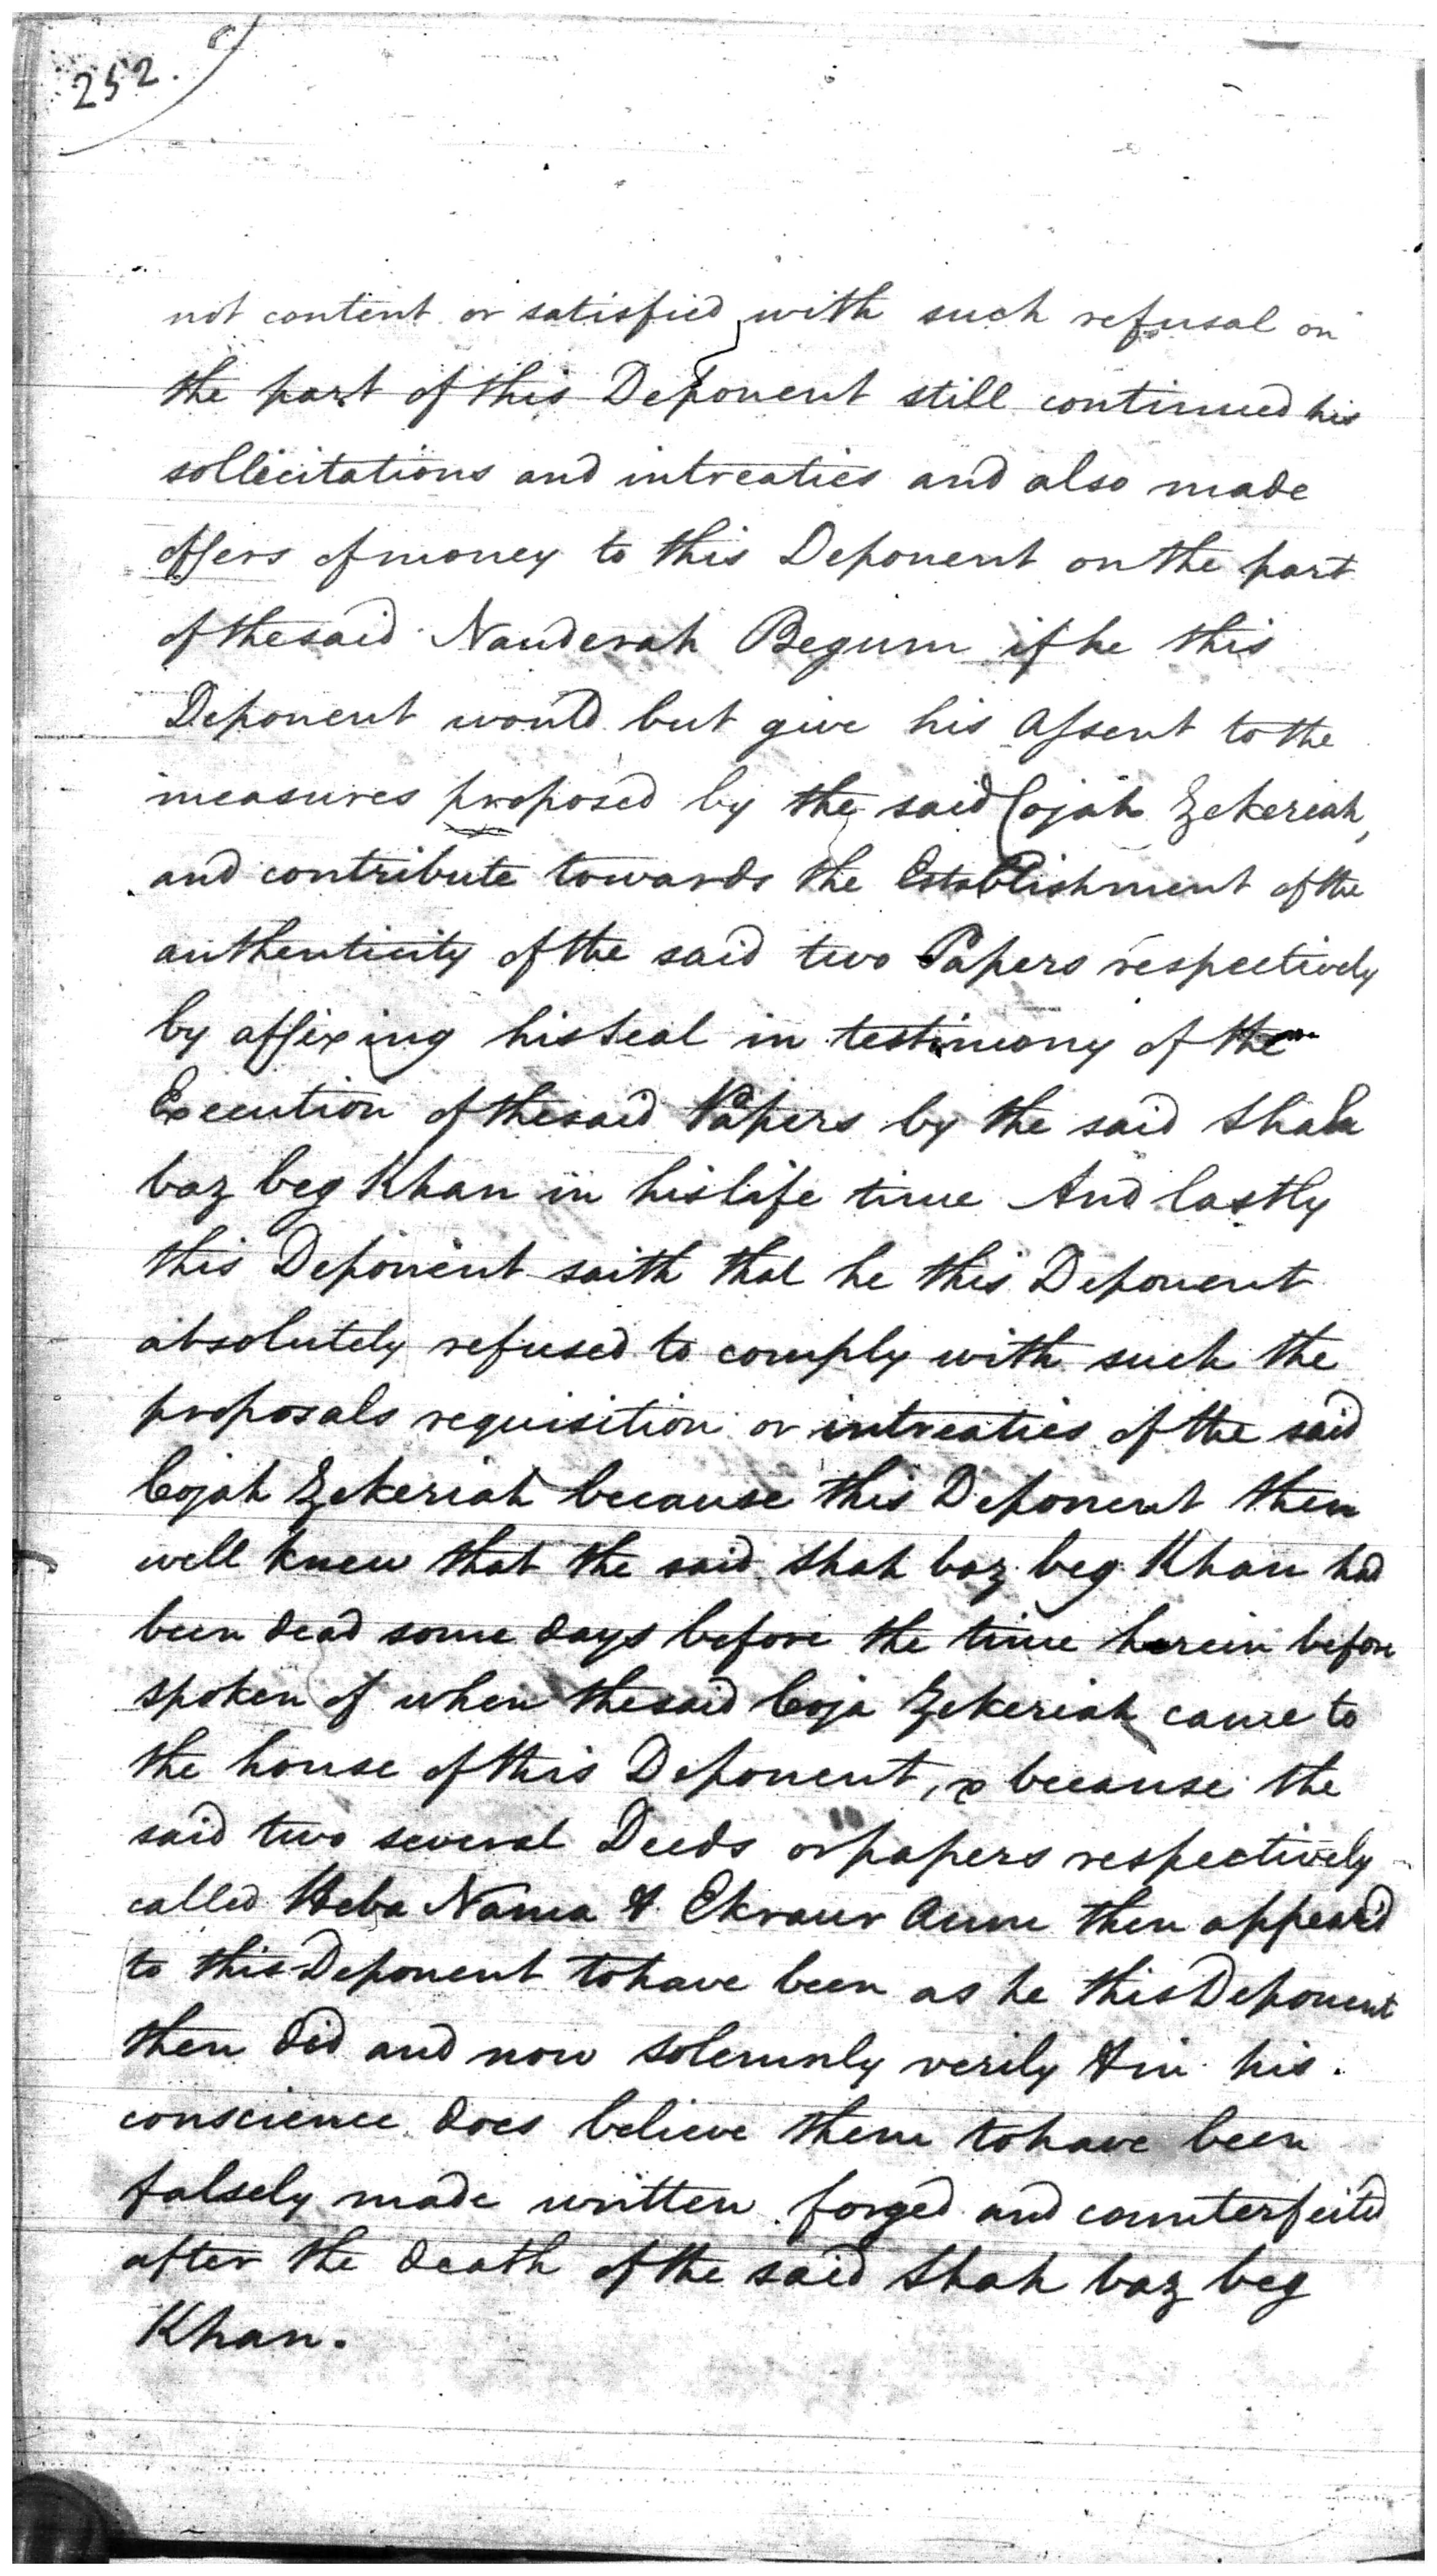 252.
not content or satisfied with such refusal on
the part of this Deponent still continued his
sollicitations and intreaties and also made
offers of money to this Deponent on the part
of the said Nauderah Begum if he this
Deponent would but give his assent to the
measures proposed by the said Cojah Zekeriah,
and contribute towards the Establishment of the
authenticity of the said two Papers respectively
by affixing his seal in testimony of the
Execution of the said Papers by the said Shah
baz beg Khan in his life time And lastly
this Deponent saith that he this Deponent
absolutely refused to comply with such the
proposals requisition or intreaties of the said
Cojah Zekeriah because this Deponent then
well knew that the said Shah baz beg Khan had
been dead some days before the time herein before
spoken of when the said Coja Zekeriah came to
the house of this Deponent, & because the
said two several Deeds or papers respectively
called Heba Nama & Ekraur Aum then appear'd
to this Deponent to have been as he this Deponent
then did and now solemnly verily & in his
conscience does believe them to have been
falsely made written forged and counterfeited
after the death of the said Shah baz beg
Khan.